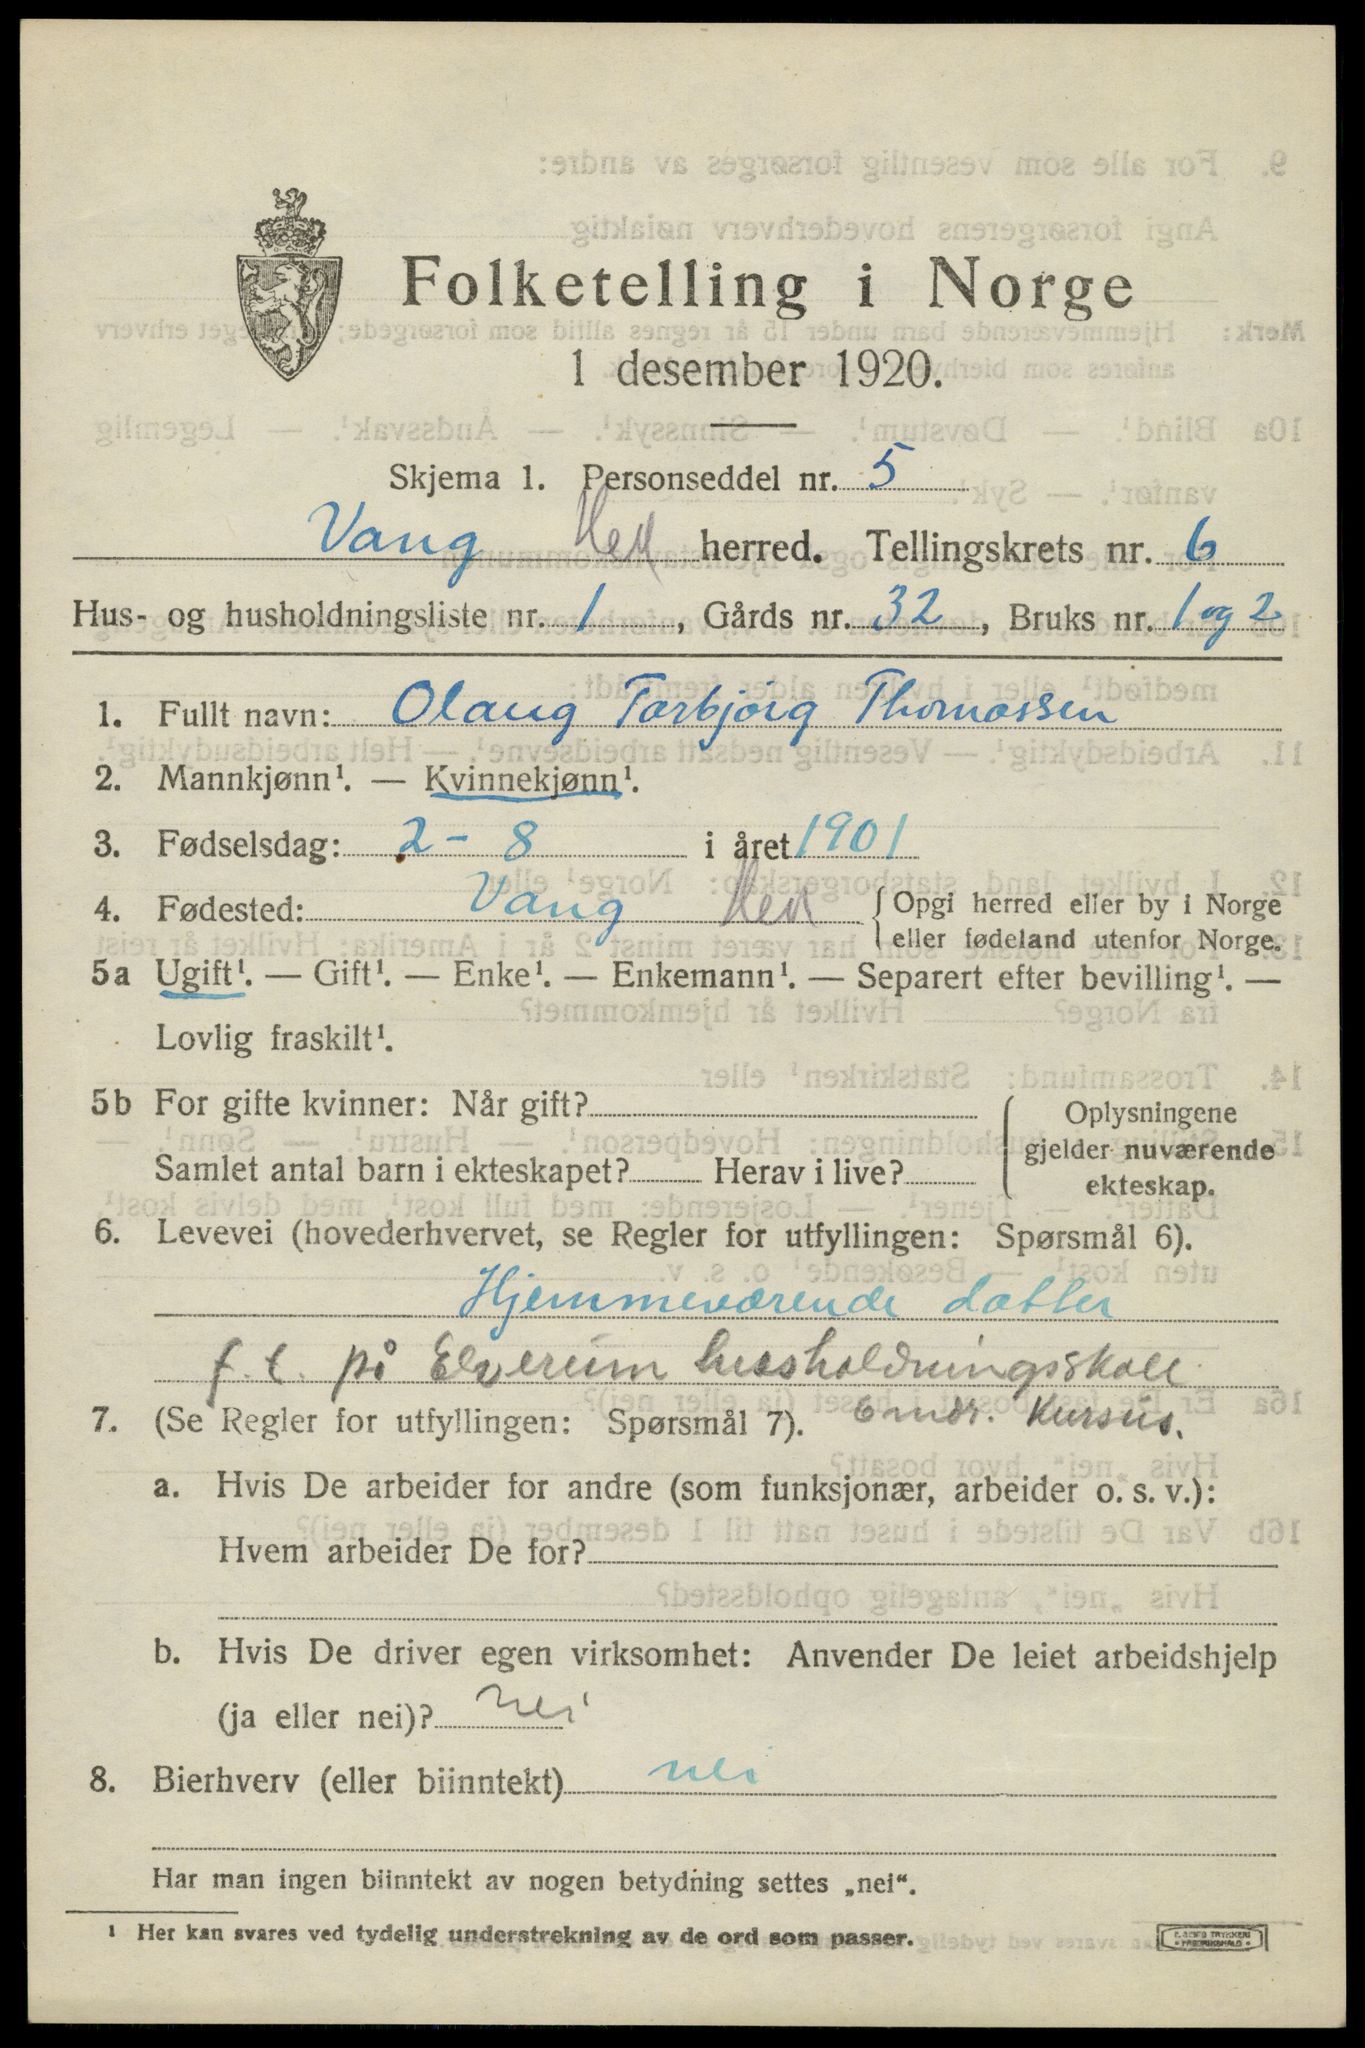 Folketelling i Norge
1 desember 1920.
Skjema 1. Personseddel nr. 5
Vang Hed herred. Tellingskrets nr. 6
Hus- og husholdningsliste nr. 1, Gårds nr. 32, Bruks nr. 1 og 2
1. Fullt navn: Olaug Torbjørg Thomassen
2. Mannkjønn¹. — Kvinnekjønn¹.
3. Fødselsdag: 2 - 8 i året 1901
4. Fødested: Vang Hed { Opgi herred eller by i Norge
eller fødeland utenfor Norge.
5a Ugift¹. — Gift¹. — Enke¹. — Enkemann¹. — Separert efter bevilling¹. —
Lovlig fraskilt¹.
5b For gifte kvinner: Når gift?
Samlet antal barn i ekteskapet? Herav i live?
Oplysningene
gjelder nuværende
ekteskap.
6. Levevei (hovederhvervet, se Regler for utfyllingen: Spørsmål 6).
Hjemmeværende datter
f. t. på Elverum husholdningsskole
6 mdr. Kursus.
7. (Se Regler for utfyllingen: Spørsmål 7).
a. Hvis De arbeider for andre (som funksjonær, arbeider o. s. v.):
Hvem arbeider De for?
b. Hvis De driver egen virksomhet: Anvender De leiet arbeidshjelp
(ja eller nei)? nei
8. Bierhverv (eller biinntekt) nei
Har man ingen biinntekt av nogen betydning settes „nei“.
¹ Her kan svares ved tydelig understrekning av de ord som passer.